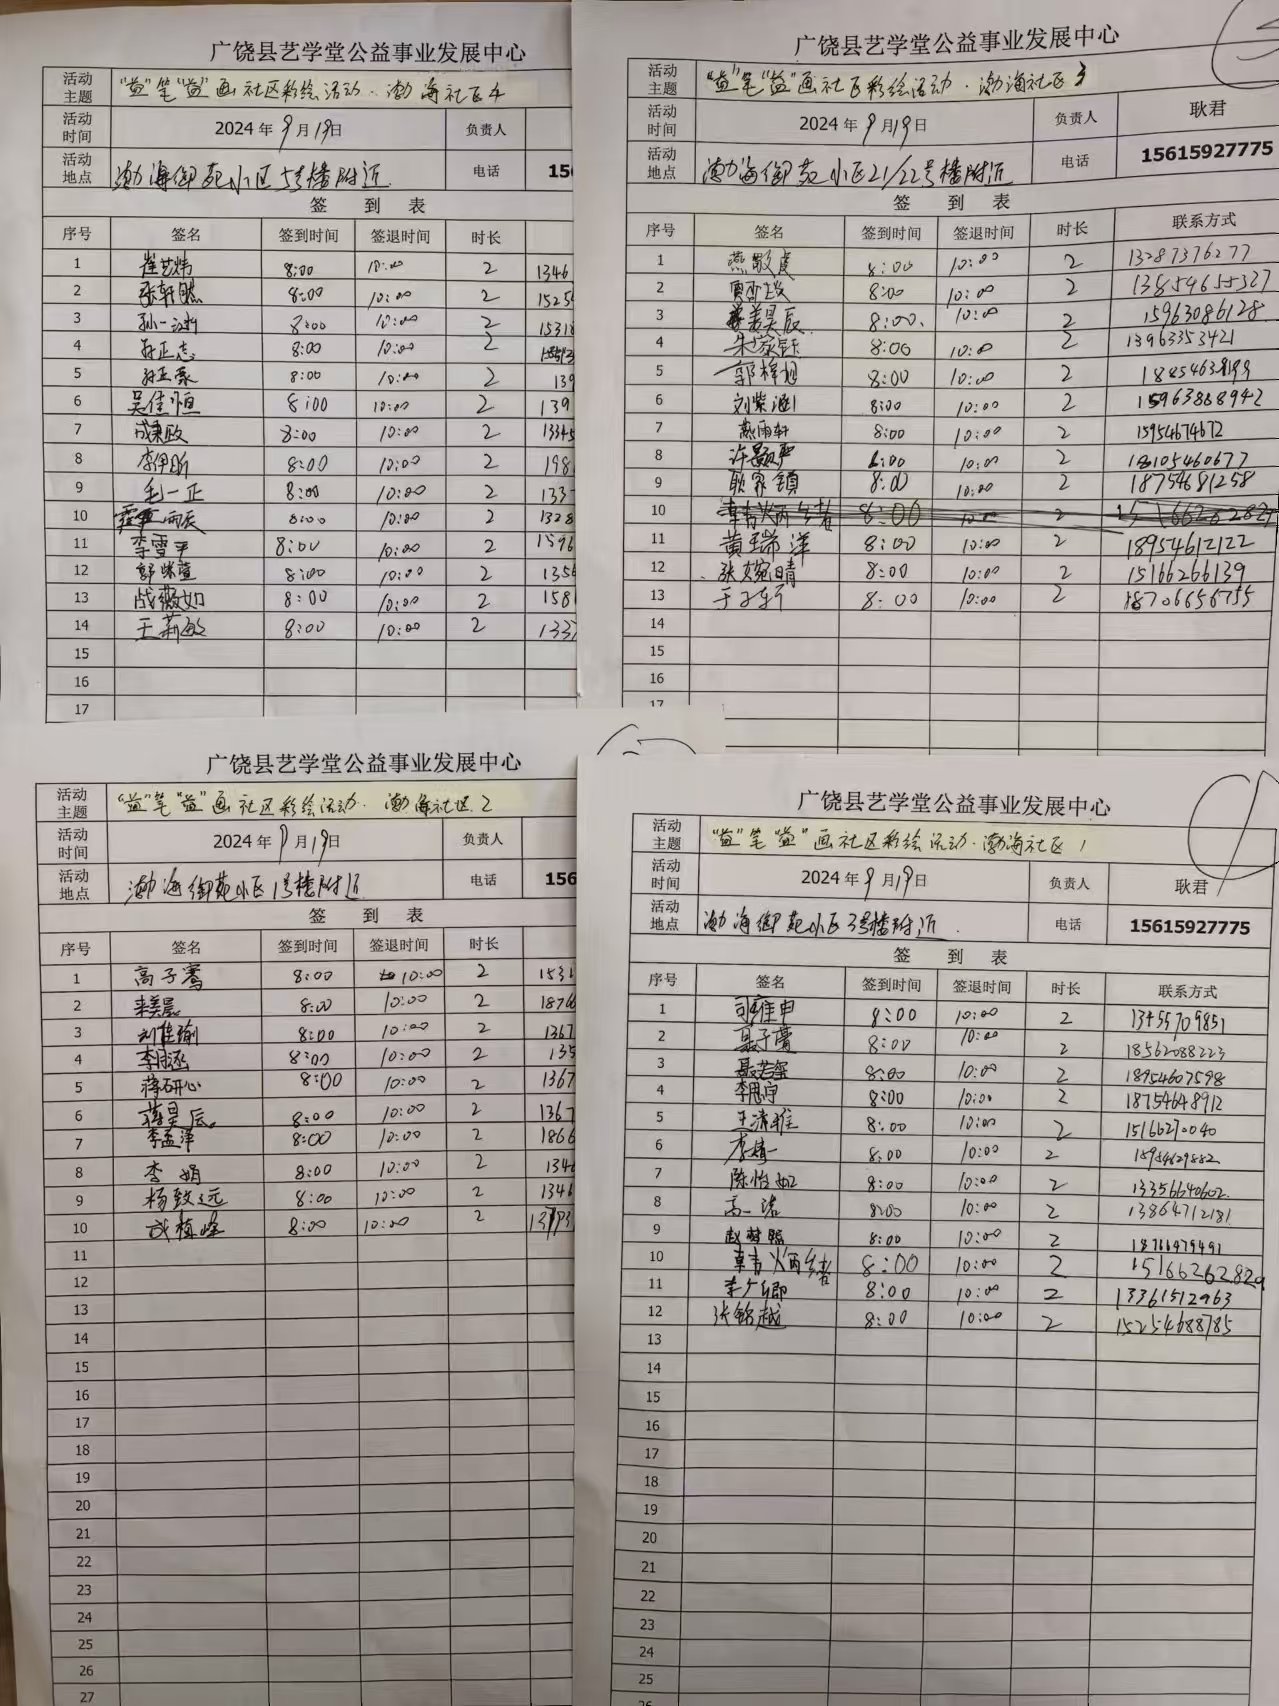 广饶县艺学堂公益事业发展中心
活动主题 "益"笔"益"画社区彩绘活动·渤海社区4
活动时间 2024年9月19日 负责人
活动地点 渤海御苑小区5号楼附近 电话 15
签 到 表
序号 签名 签到时间 签退时间 时长
1 崔艺炜 8:00 10:00 2 1346
2 张轩 8:00 10:00 2 1525
3 孙一 8:00 10:00 2 1531
4 孙正志 8:00 10:00 2
5 8:00 10:00 2 139
6 吴佳恒 8:00 10:00 2 139
7 成秉政 8:00 10:00 2 1334
8 李伊昕 8:00 10:00 2 198
9 毛一正 8:00 10:00 2 133
10 雨辰 8:00 10:00 2 1328
11 李雪平 8:00 10:00 2 1596
12 郭紫萱 8:00 10:00 2 135
13 战薇如 8:00 10:00 2 158
14 王莉 8:00 10:00 2 133
15
16
17
广饶县艺学堂公益事业发展中心
活动主题 "益"笔"益"画社区彩绘活动·渤海社区3
活动时间 2024年9月19日 负责人 耿君
活动地点 渤海御苑小区21/22号楼附近 电话 15615927775
签 到 表
序号 签名 签到时间 签退时间 时长 联系方式
1 燕 8:00 10:00 2 13287376277
2 8:00 10:00 2 13854655327
3 姜昊辰 8:00 10:00 2 15963086128
4 朱家钰 8:00 10:00 2 13963353421
5 郭梓旭 8:00 10:00 2 18454638199
6 刘紫涵 8:00 10:00 2 15963888942
7 燕雨轩 8:00 10:00 2 15954674672
8 许颢严 8:00 10:00 2 18105460677
9 耿家镇 8:00 10:00 2 18754681258
10 8:00 10:00 2 15166262829
11 黄瑞洋 8:00 10:00 2 18954612122
12 张婉晴 8:00 10:00 2 15166266139
13 于子轩 8:00 10:00 2 18706656755
14
15
16
17
广饶县艺学堂公益事业发展中心
活动主题 "益"笔"益"画社区彩绘活动·渤海社区2
活动时间 2024年9月19日 负责人
活动地点 渤海御苑小区1号楼附近 电话 156
签 到 表
序号 签名 签到时间 签退时间 时长
1 高子骞 8:00 10:00 2 1531
2 8:00 10:00 2 1876
3 刘佳瑜 8:00 10:00 2 1367
4 李 8:00 10:00 2 135
5 蒋研心 8:00 10:00 2 1367
6 蒋昊辰 8:00 10:00 2 1367
7 李孟泽 8:00 10:00 2 1866
8 李娟 8:00 10:00 2 1346
9 杨致远 8:00 10:00 2 1346
10 成植峰 8:00 10:00 2
11
12
13
14
15
16
17
18
19
20
21
22
23
24
25
26
27
广饶县艺学堂公益事业发展中心
活动主题 "益"笔"益"画社区彩绘活动·渤海社区1
活动时间 2024年9月19日 负责人 耿君
活动地点 渤海御苑小区3号楼附近 电话 15615927775
签 到 表
序号 签名 签到时间 签退时间 时长 联系方式
1 司雍申 8:00 10:00 2 13455709851
2 聂子 8:00 10:00 2 18562088223
3 聂若 8:00 10:00 2 18954607598
4 李思宁 8:00 10:00 2 18754648912
5 王清雅 8:00 10:00 2 15166270040
6 李 8:00 10:00 2 15954629882
7 陈怡如 8:00 10:00 2 13356640602
8 高一诺 8:00 10:00 2 13864712181
9 赵梦熙 8:00 10:00 2 18766479491
10 8:00 10:00 2 15166262829
11 李广卿 8:00 10:00 2 13361512963
12 张铭越 8:00 10:00 2 15254688785
13
14
15
16
17
18
19
20
21
22
23
24
25
26